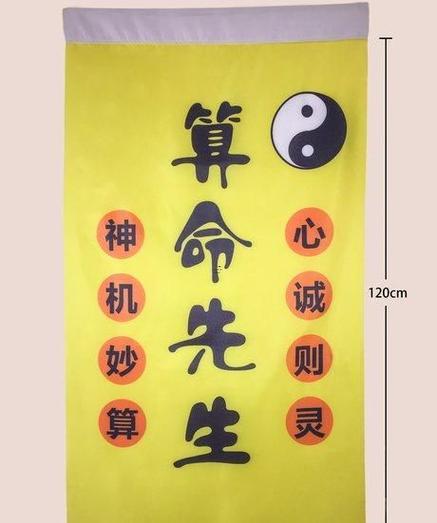 算命先生
心诚则灵
神机妙算
120cm